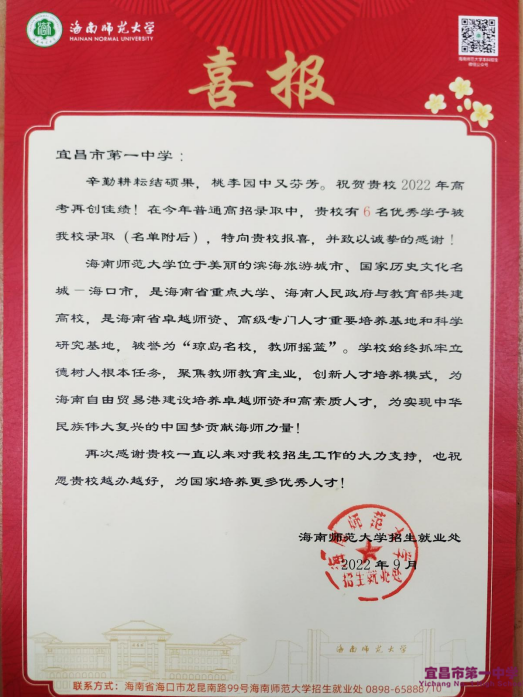 海南师范大学
HAINAN NORMAL UNIVERSITY
喜报
宜昌市第一中学：
辛勤耕耘结硕果，桃李园中又芬芳。祝贺贵校2022年高
考再创佳绩！在今年普通高招录取中，贵校有6名优秀学子被
我校录取（名单附后），特向贵校报喜，并致以诚挚的感谢！
海南师范大学位于美丽的滨海旅游城市、国家历史文化名
城－海口市，是海南省重点大学、海南人民政府与教育部共建
高校，是海南省卓越师资、高级专门人才重要培养基地和科学
研究基地，被誉为“琼岛名校，教师摇篮”。学校始终抓牢立
德树人根本任务，聚焦教师教育主业，创新人才培养模式，为
海南自由贸易港建设培养卓越师资和高素质人才，为实现中华
民族伟大复兴的中国梦贡献海师力量！
再次感谢贵校一直以来对我校招生工作的大力支持，也祝
愿贵校越办越好，为国家培养更多优秀人才！
海南师范大学招生就业处
2022年9月
海南师范大学
招生就业处
海南师范大学
宜昌市第一中学
联系方式：海南省海口市龙昆南路99号海南师范大学招生就业处 0898-65888